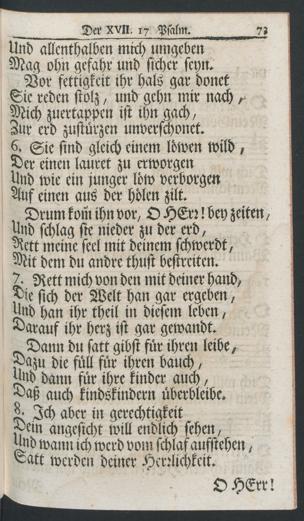 Der XVII. 17 Psalm. 73
Und allenthalben mich umgeben
Mag ohn gefahr und sicher seyn.
Vor fettigkeit ihr hals gar donet
Sie reden stolz, und gehn mir nach,
Mich zuertappen ist ihn gach,
Zur erd zustürzen unverschonet.
6. Sie sind gleich einem löwen wild,
Der einen lauret zu erworgen
Und wie ein junger löw verborgen
Auf einen aus der hölen zilt.
Drum kom̃ ihn vor, O HErr! bey zeiten,
Und schlag sie nieder zu der erd,
Rett meine seel mit deinem schwerdt,
Mit dem du andre thust bestreiten.
7. Rett mich von den mit deiner hand,
Die sich der Welt han gar ergeben,
Und han ihr theil in diesem leben,
Darauf ihr herz ist gar gewandt.
Dann du satt gibst für ihren leibe,
Dazu die füll für ihren bauch,
Und dann für ihre kinder auch,
Daß auch kindskindern überbleibe.
8. Ich aber in gerechtigkeit
Dein angesicht will endlich sehen,
Und wann ich werd vom schlaf aufstehen,
Satt werden deiner Herrlichkeit.
O HErr!